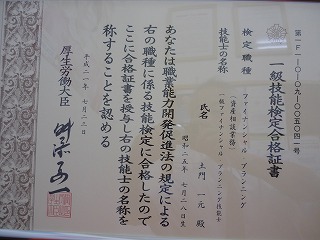 第一F1一〇一〇九一〇〇五〇四一号
一級技能検定合格証書
検定職種
ファイナンシャル プランニング
(資産相談業務)
技能士の名称
一級ファイナンシャル・プランニング技能士
氏名
土門 一元 殿
昭和二五年 七月二八日生
あなたは職業能力開発促進法の規定による
右の職種に係る技能検定に合格したので
ここに合格証書を授与し右の技能士の名称を
称することを認める
平成二一年 七月二三日
厚生労働大臣